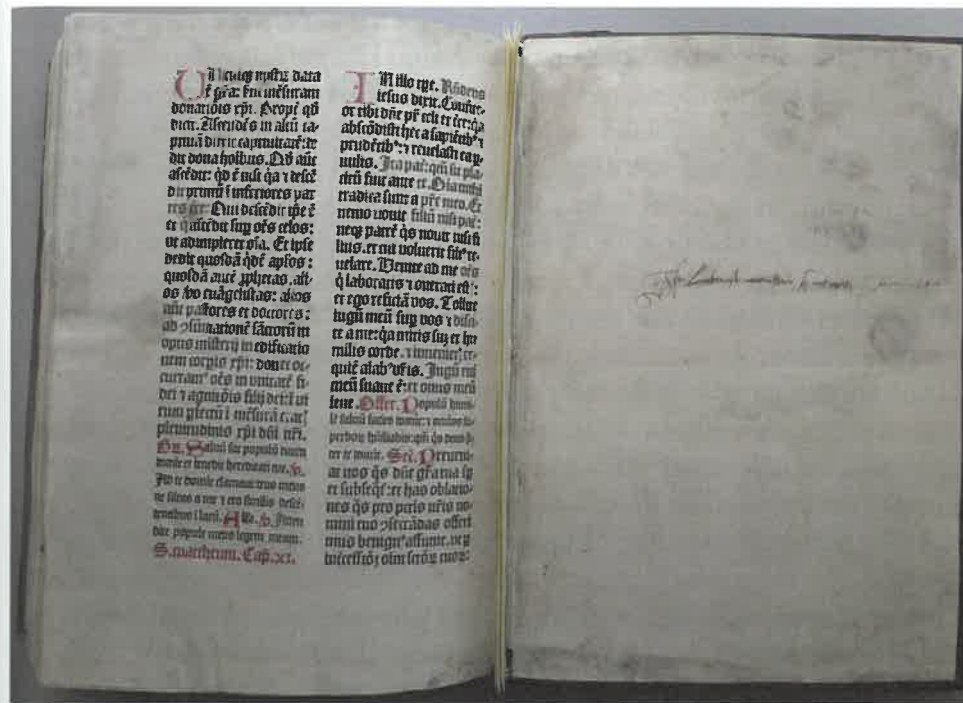 Unicuiq; nostrū data
ē gr̄a: scdm mēsuram
donatiōis xp̄i. Propt̄ qd̄
dicit. Ascendēs in altū ca-
ptiuā duxit captiuitatē: de
dit dona hoībus. Qd̄ aūt
ascēdit: qd̄ ē nisi q̄a ⁊ descē
dit primū ī inferiores par
tes ter̄. Qui descēdit ip̄e ē
et q̄ ascēdit sup̄ oēs celos:
ut adimpleret oīa. Et ipse
dedit quosdā qdē ap̄los:
quosdā autē ꝓphetas. ali-
os ṽo euāgelistas: alios
aūt pastores et doctores:
ad ↄsūmationē sāctorū in
opus misterij in edificatio
nem corpis xp̄i: donec oc-
curram⁹ oēs in vnitatē fi-
dei ⁊ agnitiōis filij dei: ī vi
rum pfectū ī mēsurā etat⁹
plenitudinis xp̄i dn̄i nr̄i.
Saluū fac populū tuum
domie et benedic hereditati tue.
Ad te domie clamaui: deus meus
ne sileas a me ⁊ ero similis descē-
dentibus ī lacū. All̄a. Atten
dite popule meus legem meam.
S. mattheum. Cap. xi.
IN illo tp̄e. Rn̄dens
iesus dixit. Confite-
or tibi dn̄e pr̄ celi et ter̄: q̄a
abscōdisti hec a sapiētib⁹ ⁊
prudētib⁹: ⁊ reuelasti ea p̄-
uulis. Ita pat̄: qm̄ sic pla-
citū fuit ante te. Oīa mihi
tradita sunt a pr̄e meo. Et
nemo nouit filiū nisi pat̄:
neq; patrē q̄s nouit nisi fi
lius. et cui voluerit fili⁹ re-
uelare. Venite ad me oēs
q̄ laboratis ⁊ onerati estꝭ:
et ego reficiā vos. Tollite
iugū meū sup̄ vos ⁊ disci-
te a me: q̄a mitis suꝫ et hu
milis corde. ⁊ inuenietꝭ re-
quiē aīab⁹ vr̄is. Iugū eni
meū suaue ē: et onus meū
leue. Offer. Populū humi-
lē saluū facies domie: ⁊ oculos su-
perboꝝ hūiliabis: qm̄ q̄s deus p̄-
ter te domie. Sec̄. Preueni-
at nos q̄s dn̄e gr̄a tua sp̄
et subseq̄t: et has oblatio-
nes q̄s pro pctis nr̄is no-
mini tuo ↄsecrādas offeri
mus benign⁹ assume. ut p
intcessioꝫ oīm sctoꝝ tuoꝝ: